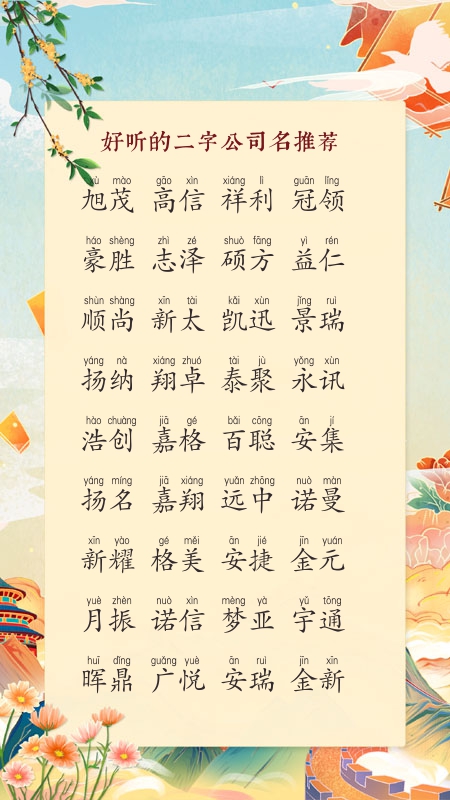 好听的二字公司名推荐
xù mào gāo xìn xiáng lì guān lǐng
旭茂 高信 祥利 冠领
háo shèng zhì zé shuò fāng yì rén
豪胜 志泽 硕方 益仁
shùn shàng xīn tài kǎi xùn jǐng ruì
顺尚 新太 凯迅 景瑞
yáng nà xiáng zhuó tài jù yǒng xùn
扬纳 翔卓 泰聚 永讯
hào chuàng jiā gé bǎi cōng ān jí
浩创 嘉格 百聪 安集
yáng míng jiā xiáng yuǎn zhōng nuò màn
扬名 嘉翔 远中 诺曼
xīn yào gé měi ān jié jīn yuán
新耀 格美 安捷 金元
yuè zhèn nuò xìn mèng yà yǔ tōng
月振 诺信 梦亚 宇通
huī dǐng guǎng yuè ān ruì jīn xīn
晖鼎 广悦 安瑞 金新